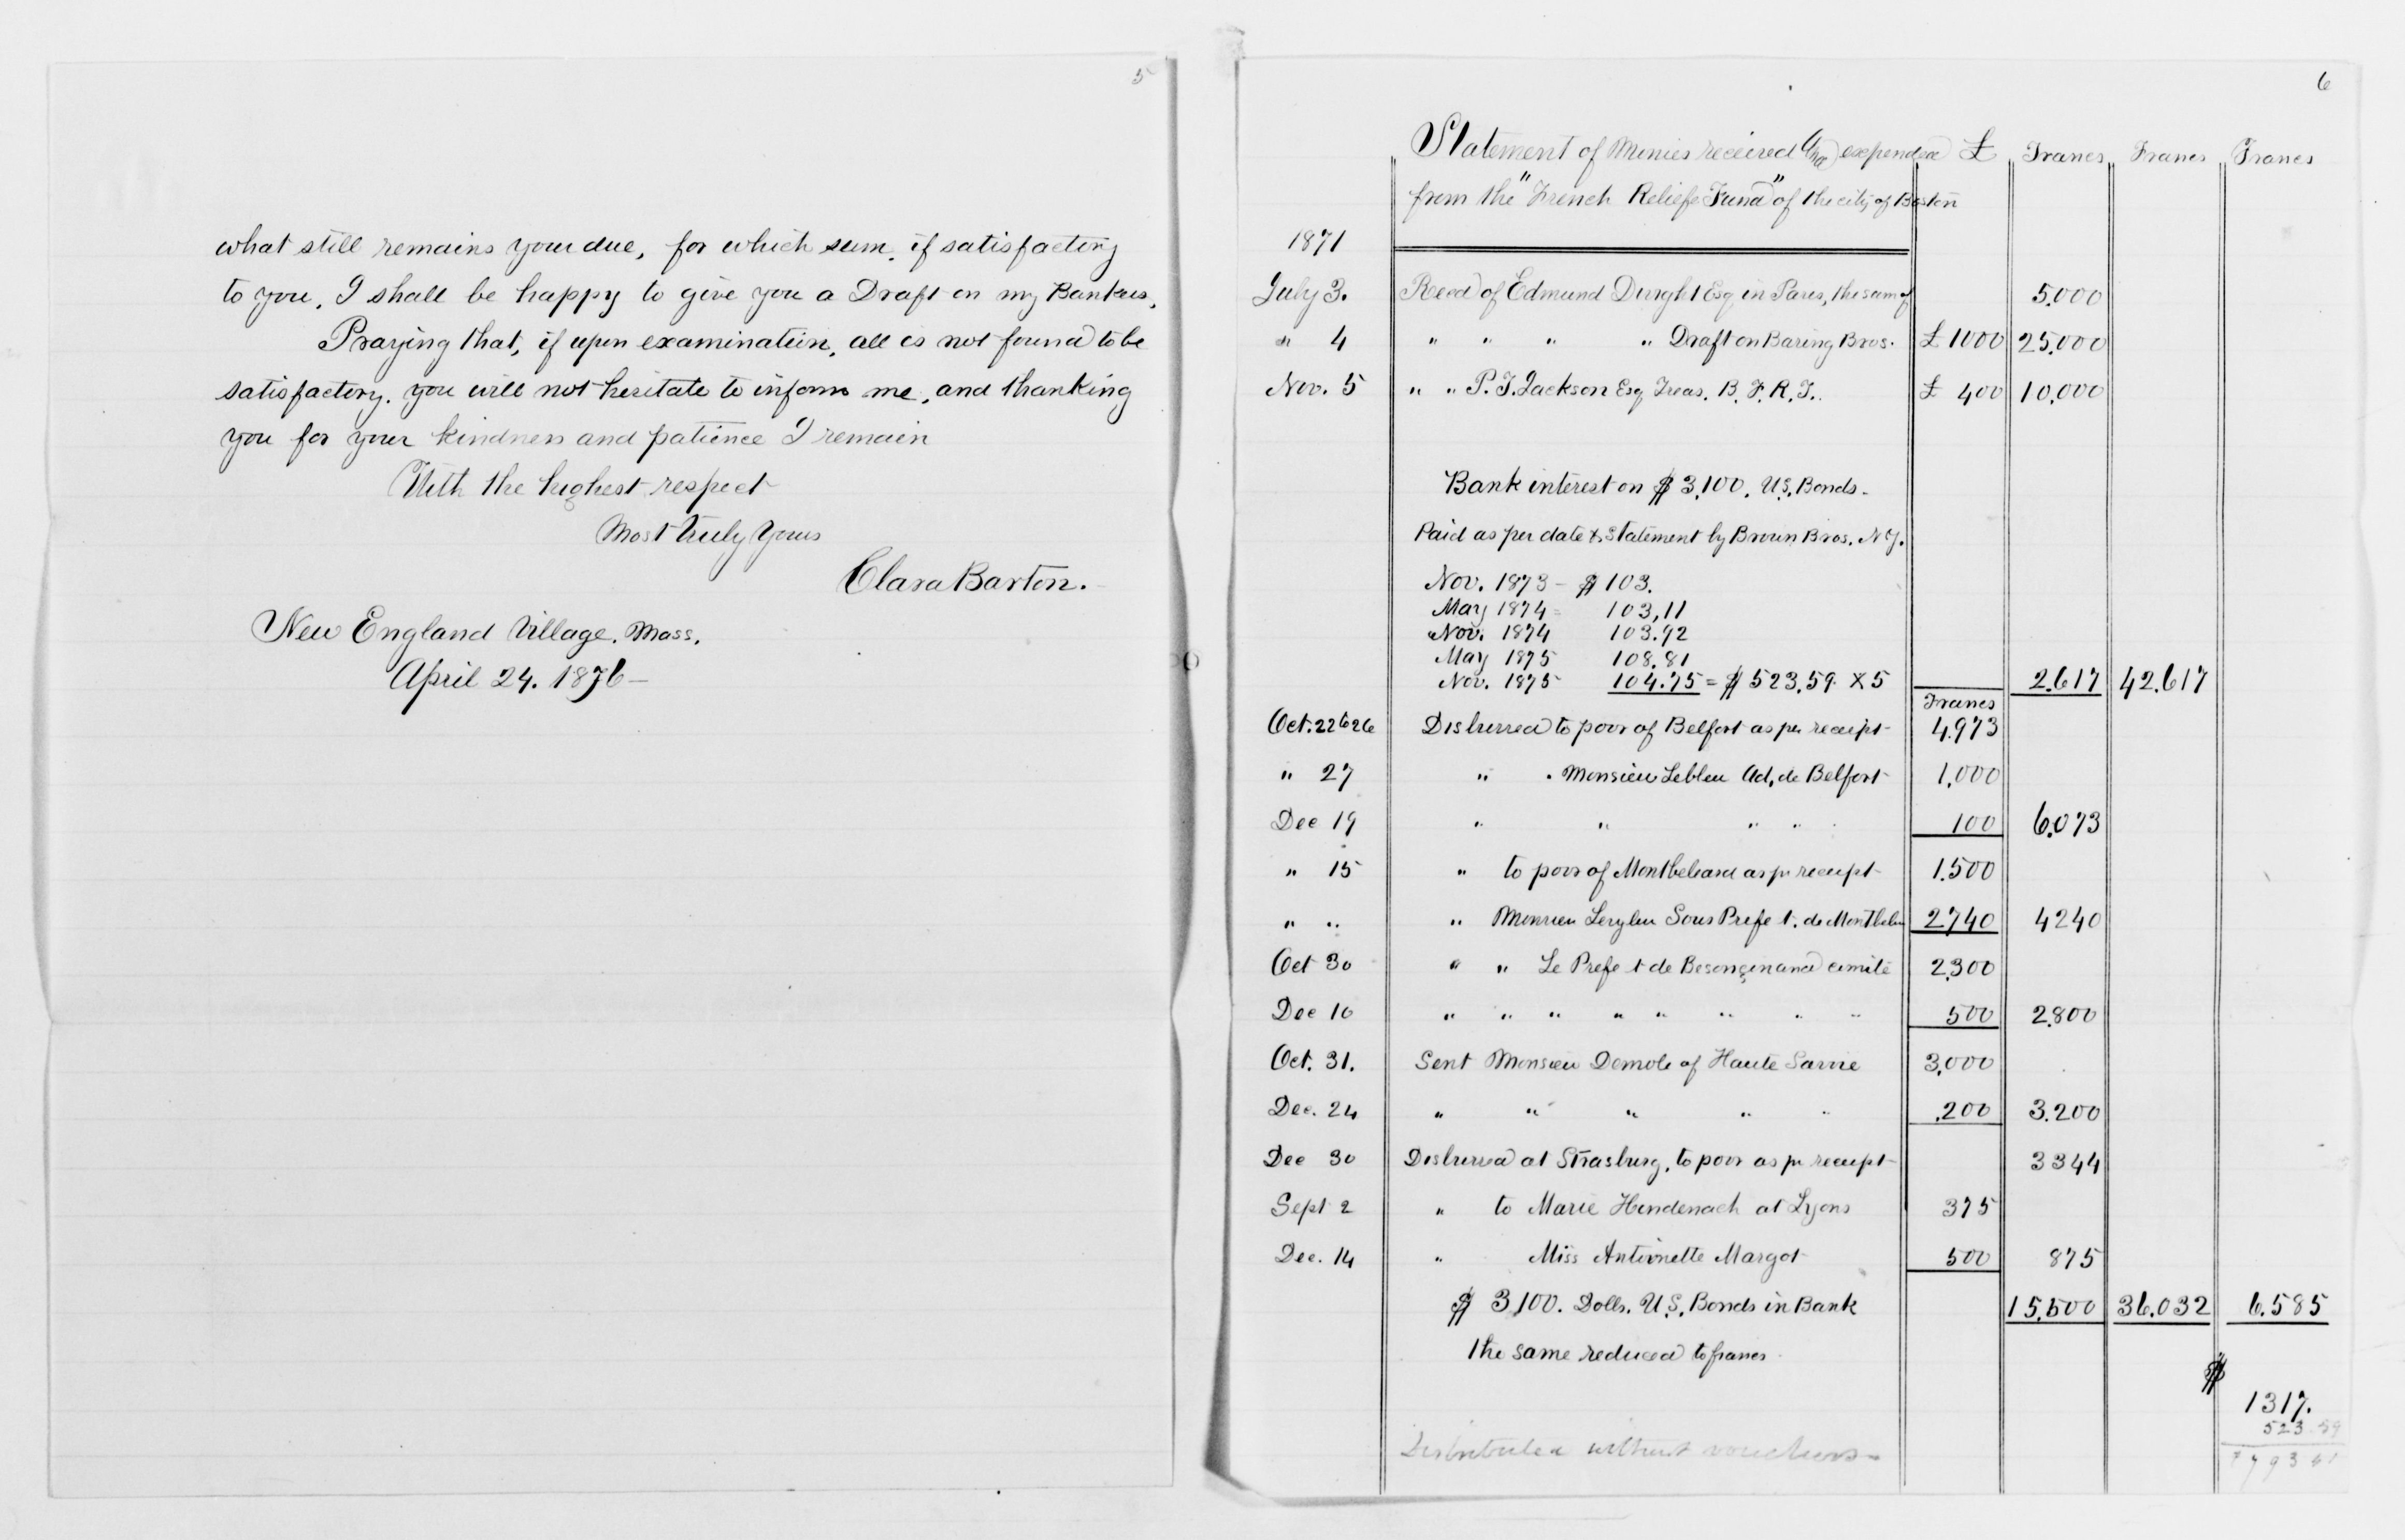 5
what still remains your due, for which sum, if satisfactory
to you, I shall be happy to give you a Draft on my Bankers.
Praying that, if upon examination, all is not found to be
satisfactory, you will not hesitate to inform me, and thanking
you for your kindness and patience I remain
With the highest respect
Most truly yours
Clara Barton.
New England Village. Mass.
April 24. 1876—
6
Statement of Monies received and expended £ Francs Francs Francs
from the "French Relief Fund" of the city of Boston
1871
July 3. Recd of Edmund Dwight Esq in Paris, the sum of 5.000
" 4 " " " " Draft on Baring Bros. £ 1000 25.000
Nov. 5 " " P. T. Jackson Esq Treas. B. F. R. F. £ 400 10.000
Bank interest on $ 3,100. U.S. Bonds—
Paid as per date & statement by Brown Bros. N.Y.
Nov. 1873 — $ 103.
May 1874 = 103,11
Nov. 1874 103.92
May 1875 108.81
Nov. 1875 104.75 = $ 523,59 X 5 2.617 42.617
Francs
Oct. 22 to 26 Disbursed to poor of Belfort as per receipt 4.973
" 27 " " Monsieu Lebleu Ad. de Belfort 1.000
Dec 19 " " " " 100 6.073
" 15 " to poor of Montbeliard as pr receipt 1.500
" " " Monsieu Sous Prefe t. de Montbelia 2740 4240
Oct 30 " " Le Prefe t de Besonçon and comité 2.300
Dec 10 " " " " " " " " 500 2.800
Oct. 31. Sent Monsieu Demole of Haute Savoie 3.000
Dec. 24 " " " " " .200 3.200
Dec 30 Disbursed at Strasburg, to poor as pr receipt 3344
Sept 2 " to Marie Hendenach at Lyons 375
Dec. 14 " Miss Antoinette Margot 500 875
$ 3100. Dolls. U.S. Bonds in Bank 15.500 36.032 6.585
the same reduced to francs
$
1317.
523.59
793 41
Distributed without vouchers—